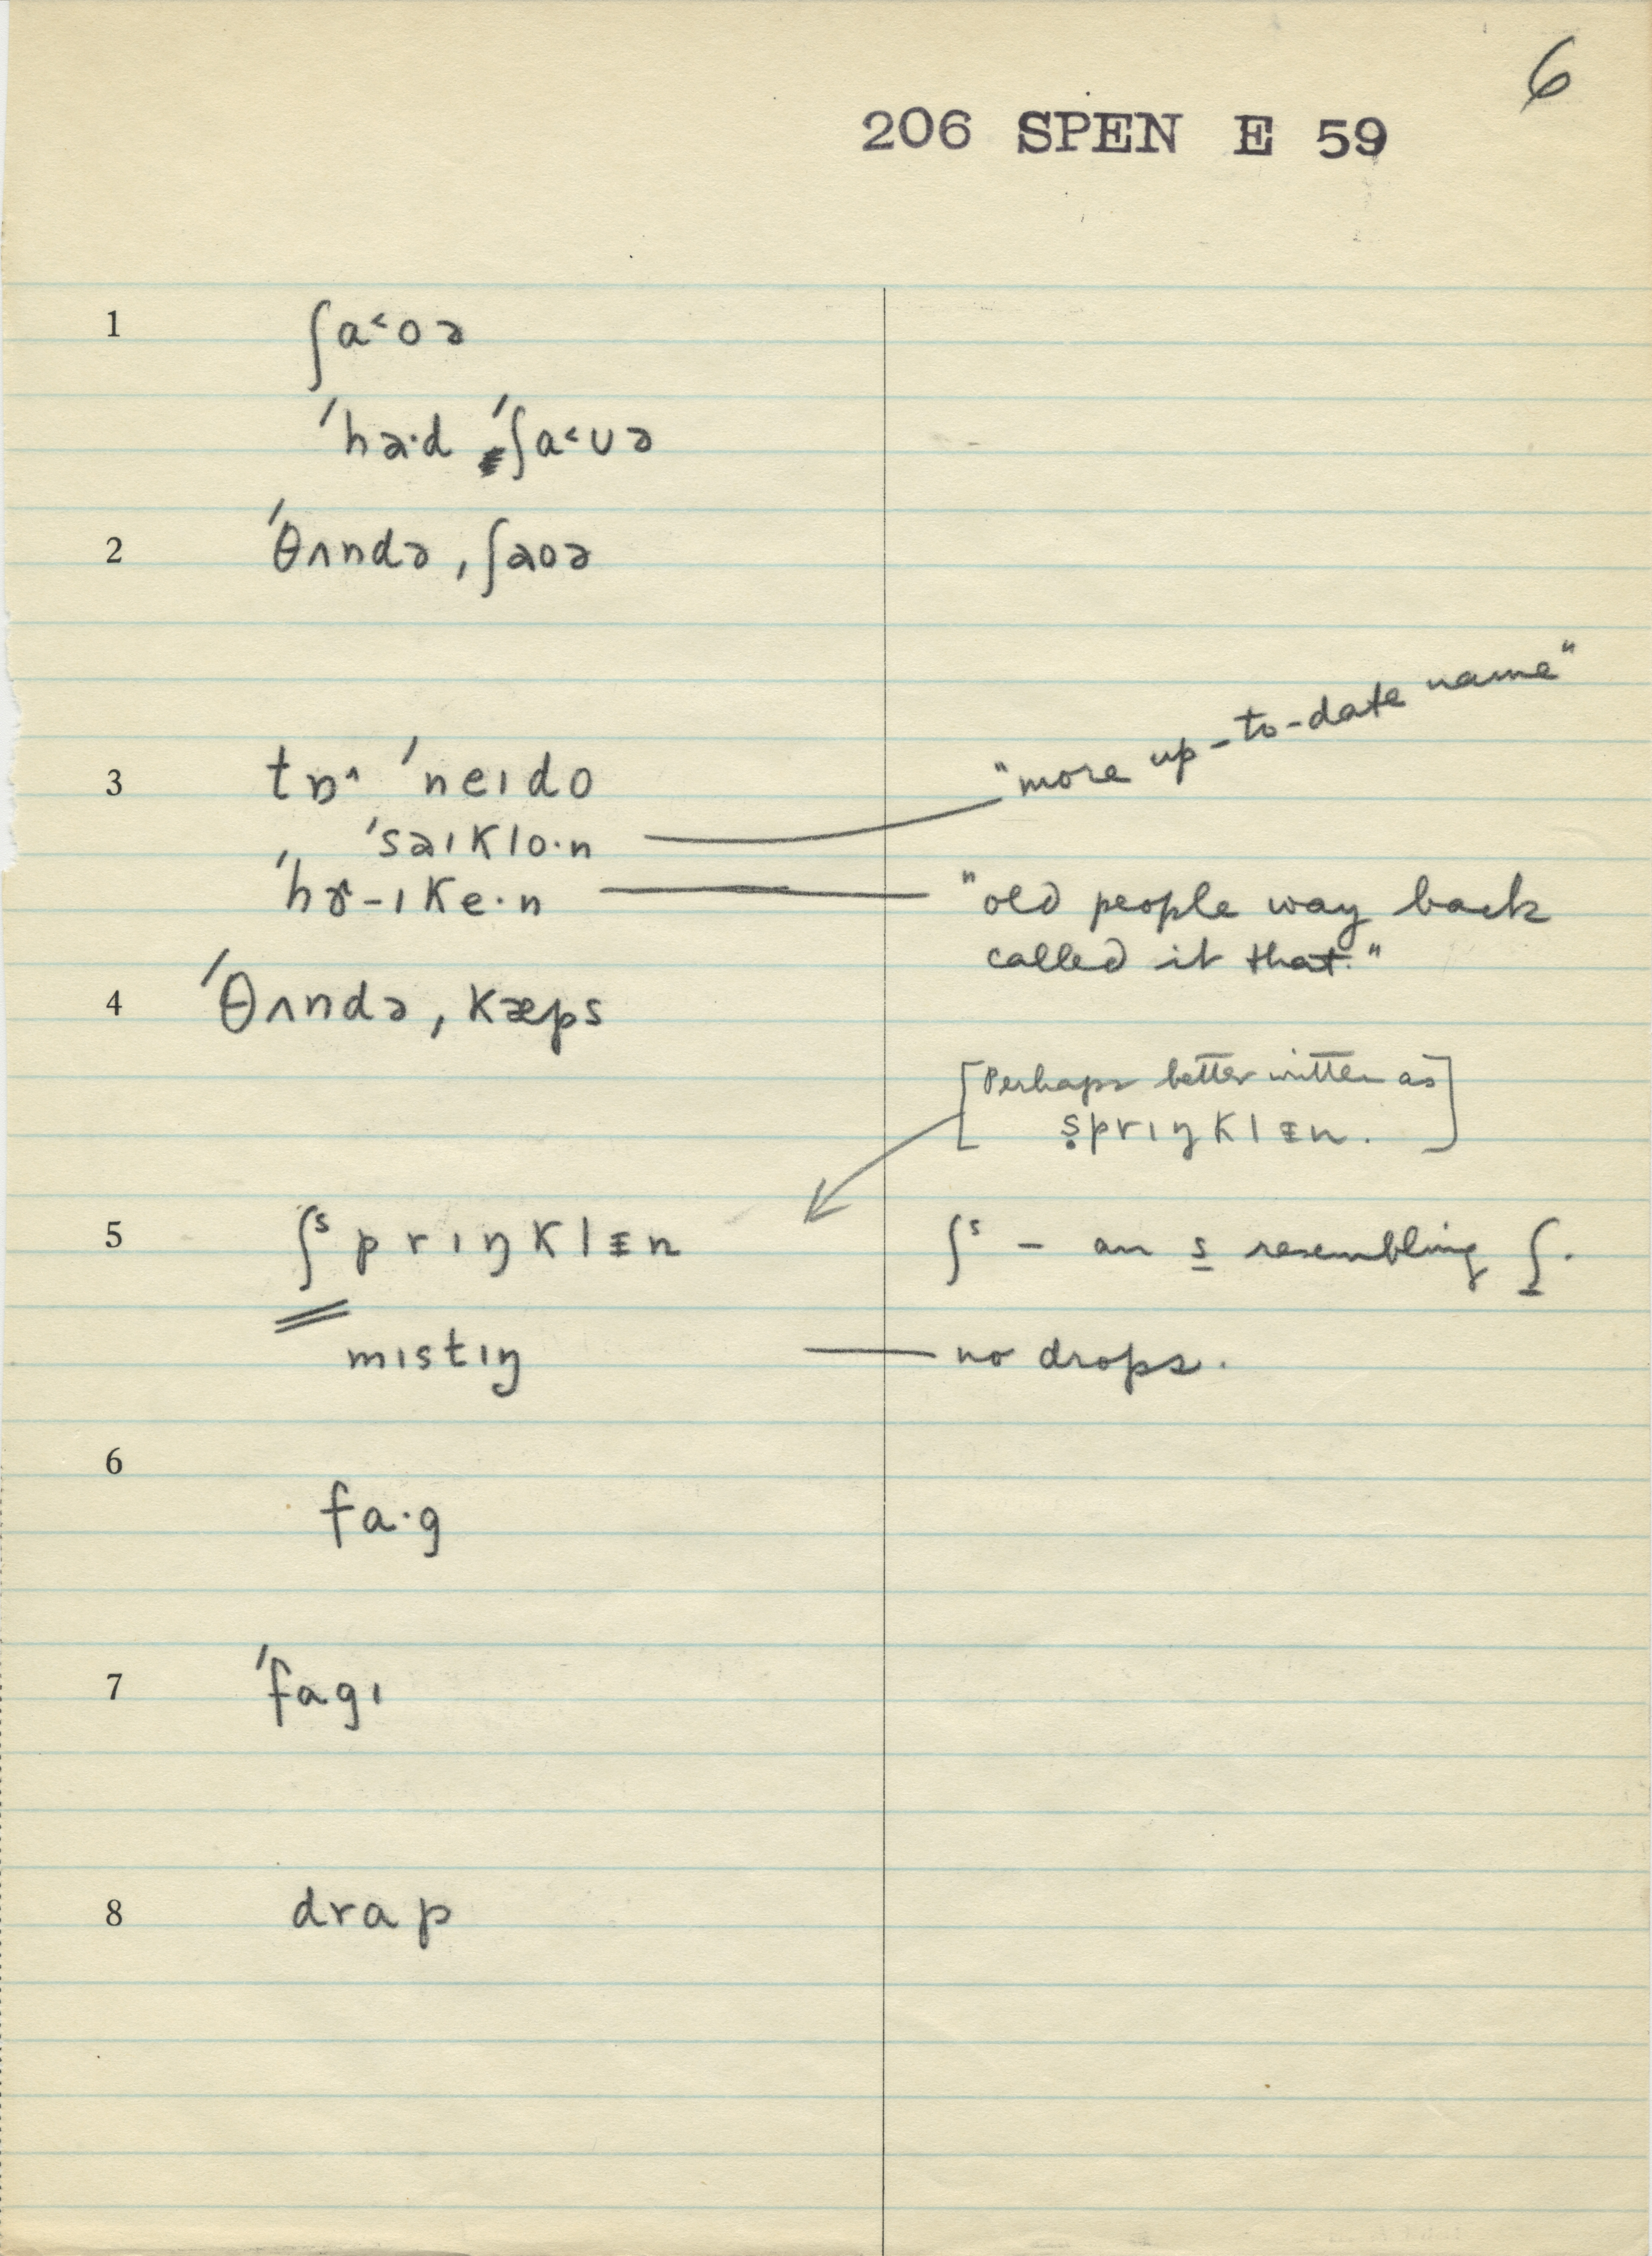 6
206 SPEN E 59
1 ʃa˂oə
ˈhɑ·d ˈʃa˂ʊə
2 ˈθʌndə ˌʃɑoə
3 tɒ˄ ˈneɪdo
"more up-to-date name"
ˈsaɪklo·n
ˈhɝ-ɪke·n "old people way back
called it that."
4 ˈθʌndə ˌkæps
[Perhaps better written as
ṣprɪŋklɪn.]
5 ʃˢprɪŋklɪn ʃˢ – an s resembling ʃ.
mɪstɪŋ — no drops.
6
fa·g
7 ˈfagɪ
8 drap